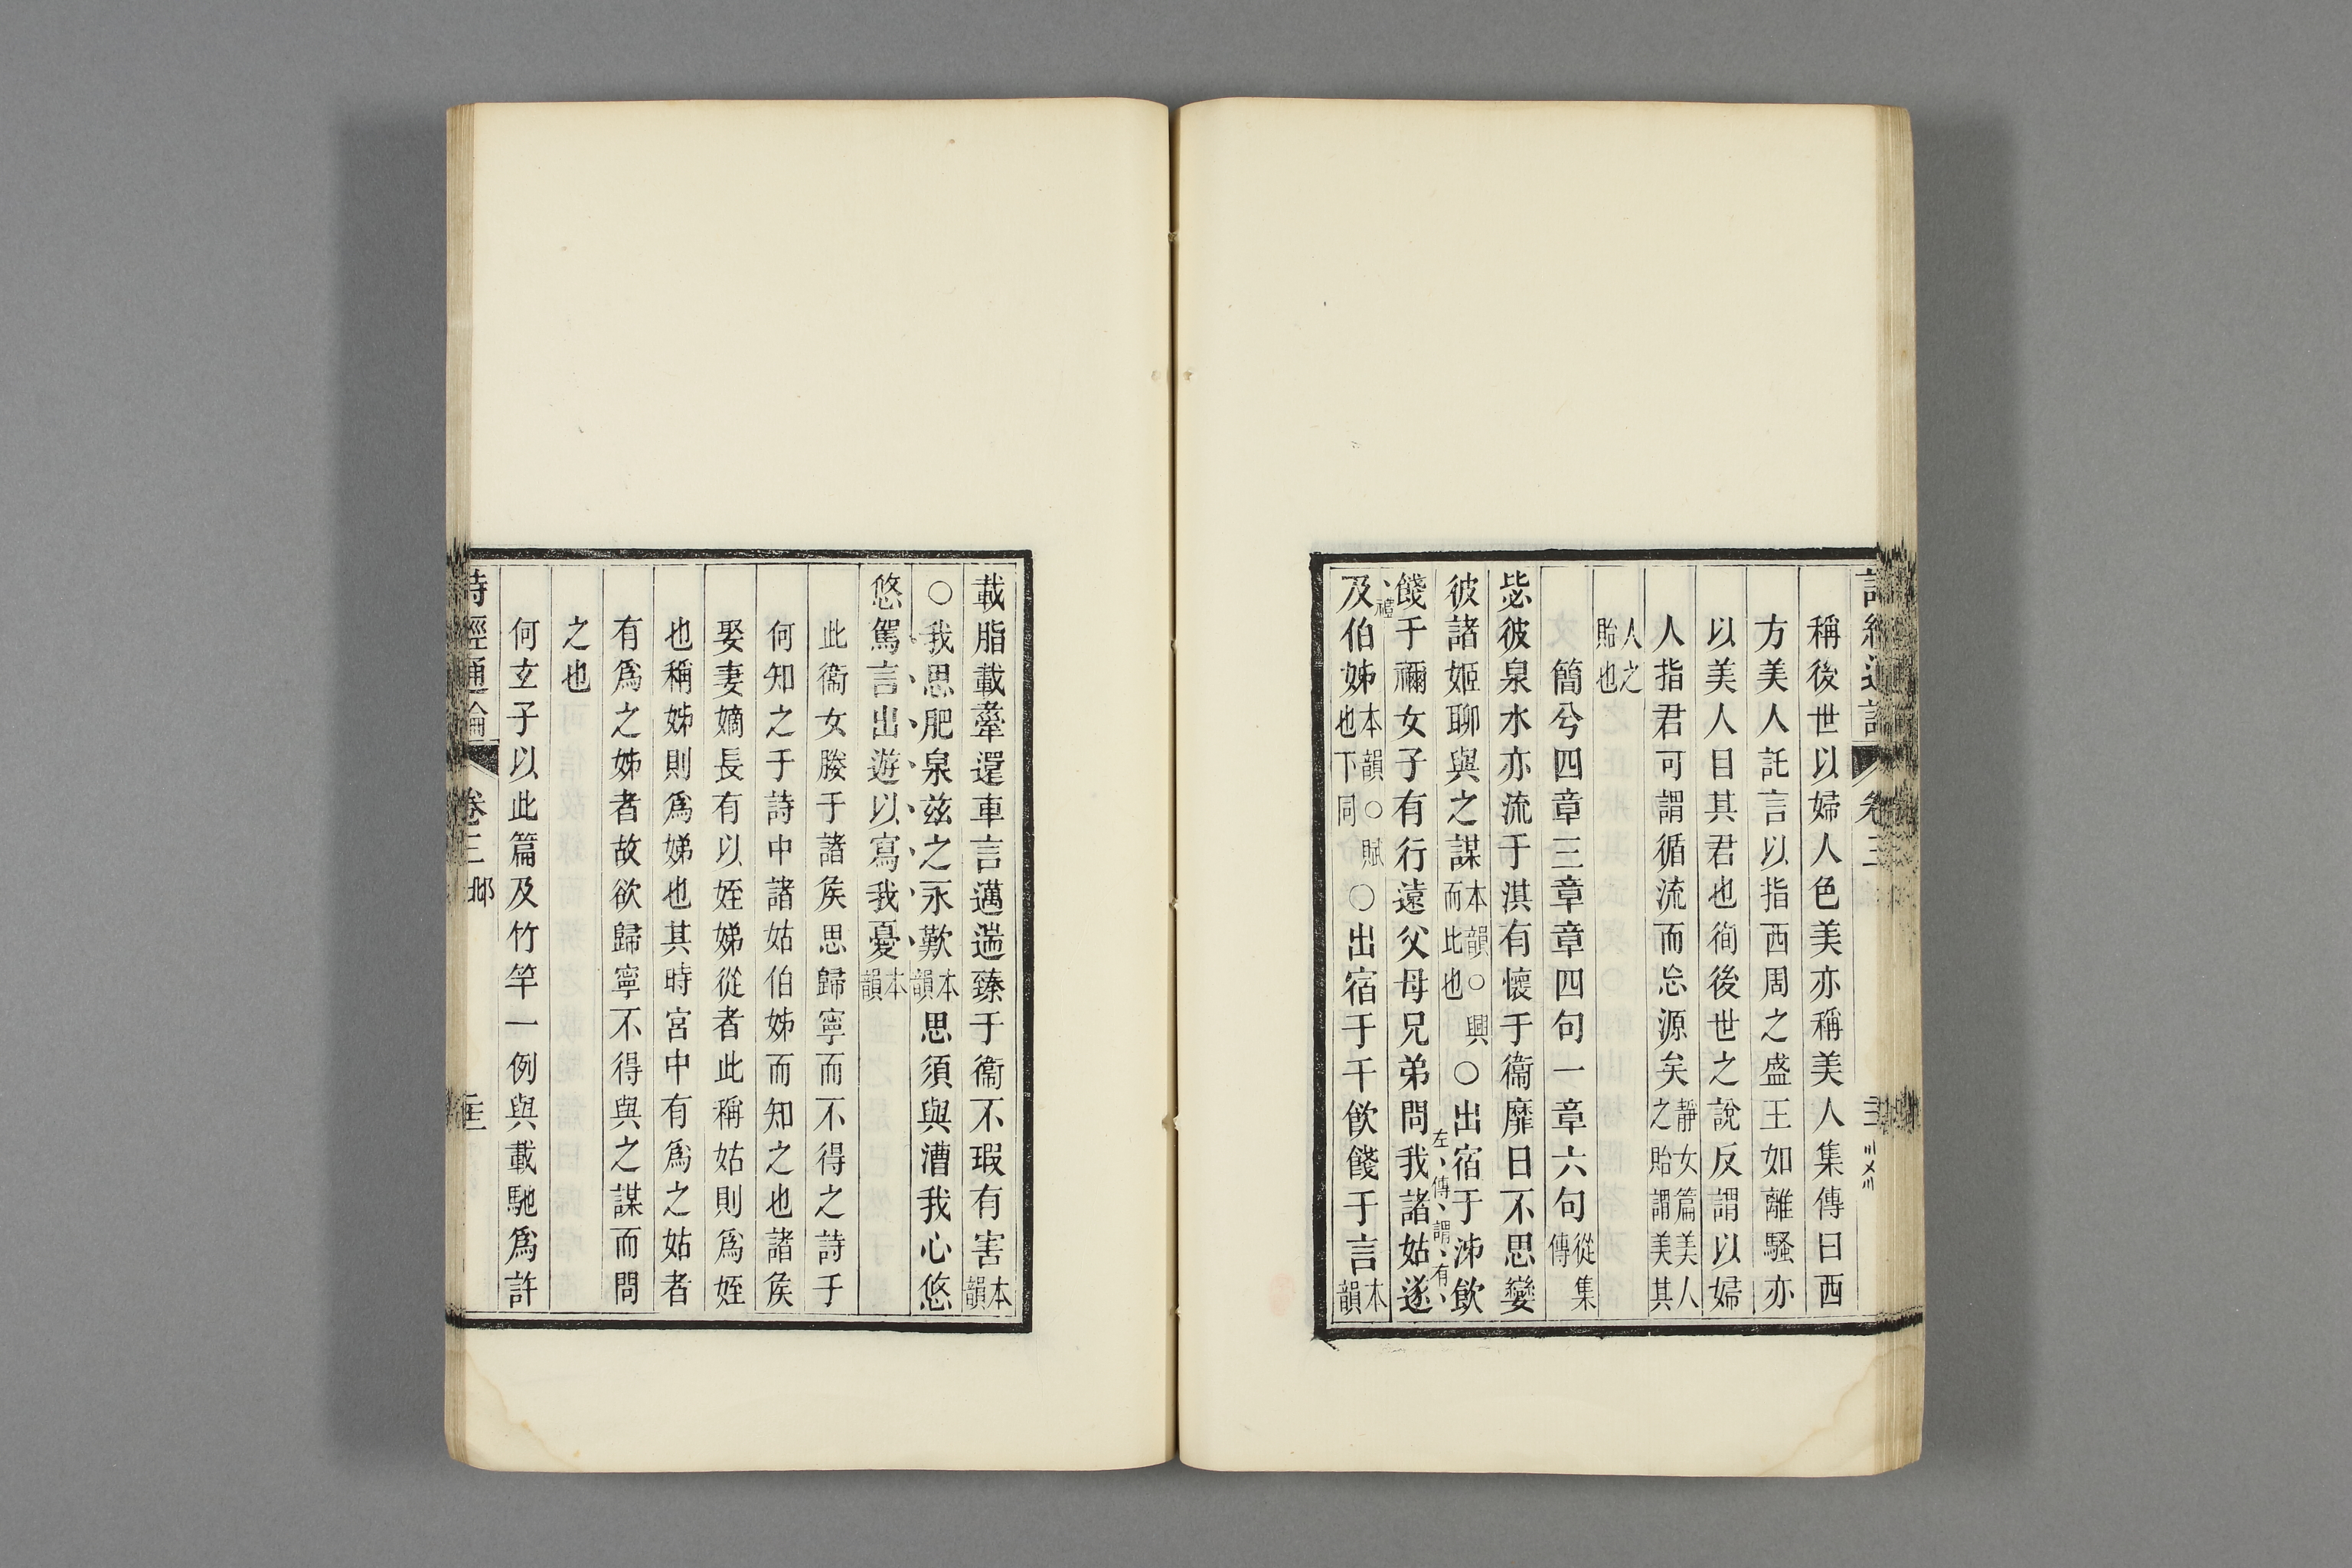 稱後世以婦人色美亦稱美人集傳曰西
方美人託言以指西周之盛王如離騷亦
以美人目其君也徇後世之說反謂以婦
人指君可謂循流而忘源矣靜女篇美人之貽謂美其
人之貽也
簡兮四章三章章四句一章六句從集傳
毖彼泉水亦流于淇有懷于衞靡日不思孌
彼諸姬聊與之謀本韻○興而比也○出宿于泲飲
餞于禰女子有行遠父母兄弟問我諸姑遂
左傳謂有禮
及伯姊本韻○賦也下同○出宿于干飲餞于言本韻
載脂載舝還車言邁遄臻于衞不瑕有害本韻
○我思肥泉兹之永歎本韻思須與漕我心悠
悠駕言出遊以寫我憂本韻
此衞女媵于諸矦思歸寧而不得之詩于
何知之于詩中諸姑伯姊而知之也諸矦
娶妻嫡長有以姪娣從者此稱姑則爲姪
也稱姊則爲娣也其時宮中有爲之姑者
有爲之姊者故欲歸寧不得與之謀而問
之也
何玄子以此篇及竹竿一例與載馳爲許
詩經通論 卷三 邶